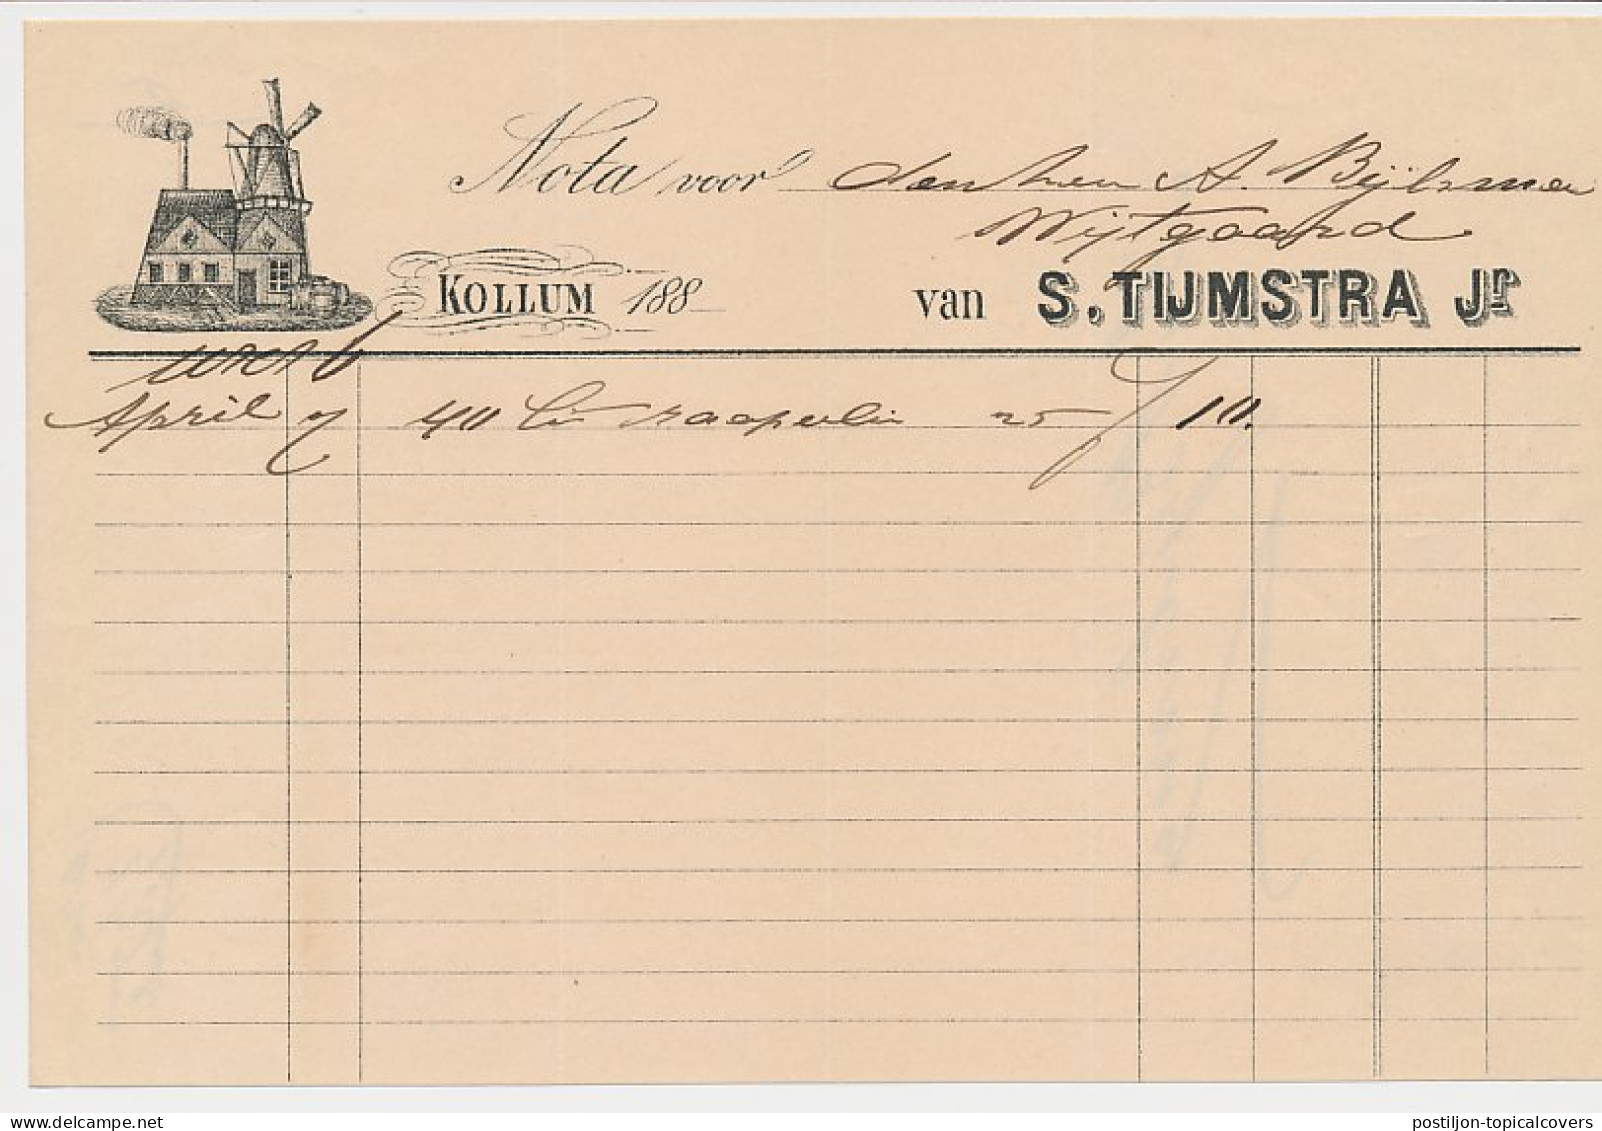 Nota voor den heer A. Bijlsma
Wijtgaard
KOLLUM 188
van S. TIJMSTRA Jr
April 7 40 Lit raapolie 25 f 10.
postiljon-topicalcovers